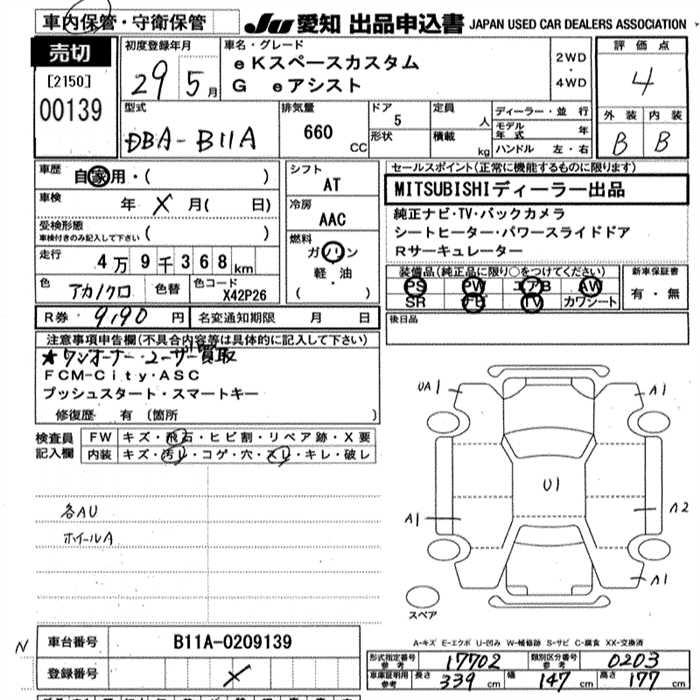 車内保管・守衛保管 JU 愛知 出品申込書 JAPAN USED CAR DEALERS ASSOCIATION
売切
[2150]
00139
初度登録年月
29 5月
車名・グレード
eKスペースカスタム
G eアシスト
2WD
・
4WD
評価点
4
外装 内装
B B
型式
DBA-B11A
排気量
660 CC
ドア
5
形状
定員
人
積載
kg
ディーラー・並行
モデル年式 年
ハンドル 左・右
車歴
自家用・( )
車検 年 X 月( 日)
受検形態
車検付きのみ記入して下さい ( )
走行 4万9千368km
色 アカ/クロ 色替 色コード X42P26
シフト
AT
冷房
AAC
燃料
ガソリン
軽・油
( )
セールスポイント(正常に機能するものに限ります)
MITSUBISHIディーラー出品
純正ナビ・TV・バックカメラ
シートヒーター・パワースライドドア
Rサーキュレーター
装備品(純正品に限り○をつけてください)
PS PW エアB AW
SR TV カワシート
新車保証書
有・無
R券 9,190 円 名変通知期限 月 日
後日品
注意事項申告欄(不具合内容等は具体的に記入して下さい)
★ワンオーナー・ユーザー買取
FCM-City・ASC
プッシュスタート・スマートキー
修復歴 有 (箇所 )
検査員記入欄
FW キズ・飛石・ヒビ割・リペア跡・X要
内装 キズ・汚レ・コゲ・穴・スレ・キレ・破レ
各AU
ホイールA
UA1 A1
U1
A1 A2
A1
スペア
N 車台番号 B11A-0209139
登録番号 X
A-キズ E-エクボ U-凹み W-補修跡 S-サビ C-腐食 XX-交換済
形式指定番号 参考 17702 類別区分番号 参考 0203
車庫証明用 参考 長さ 339 cm 幅 147 cm 高さ 177 cm